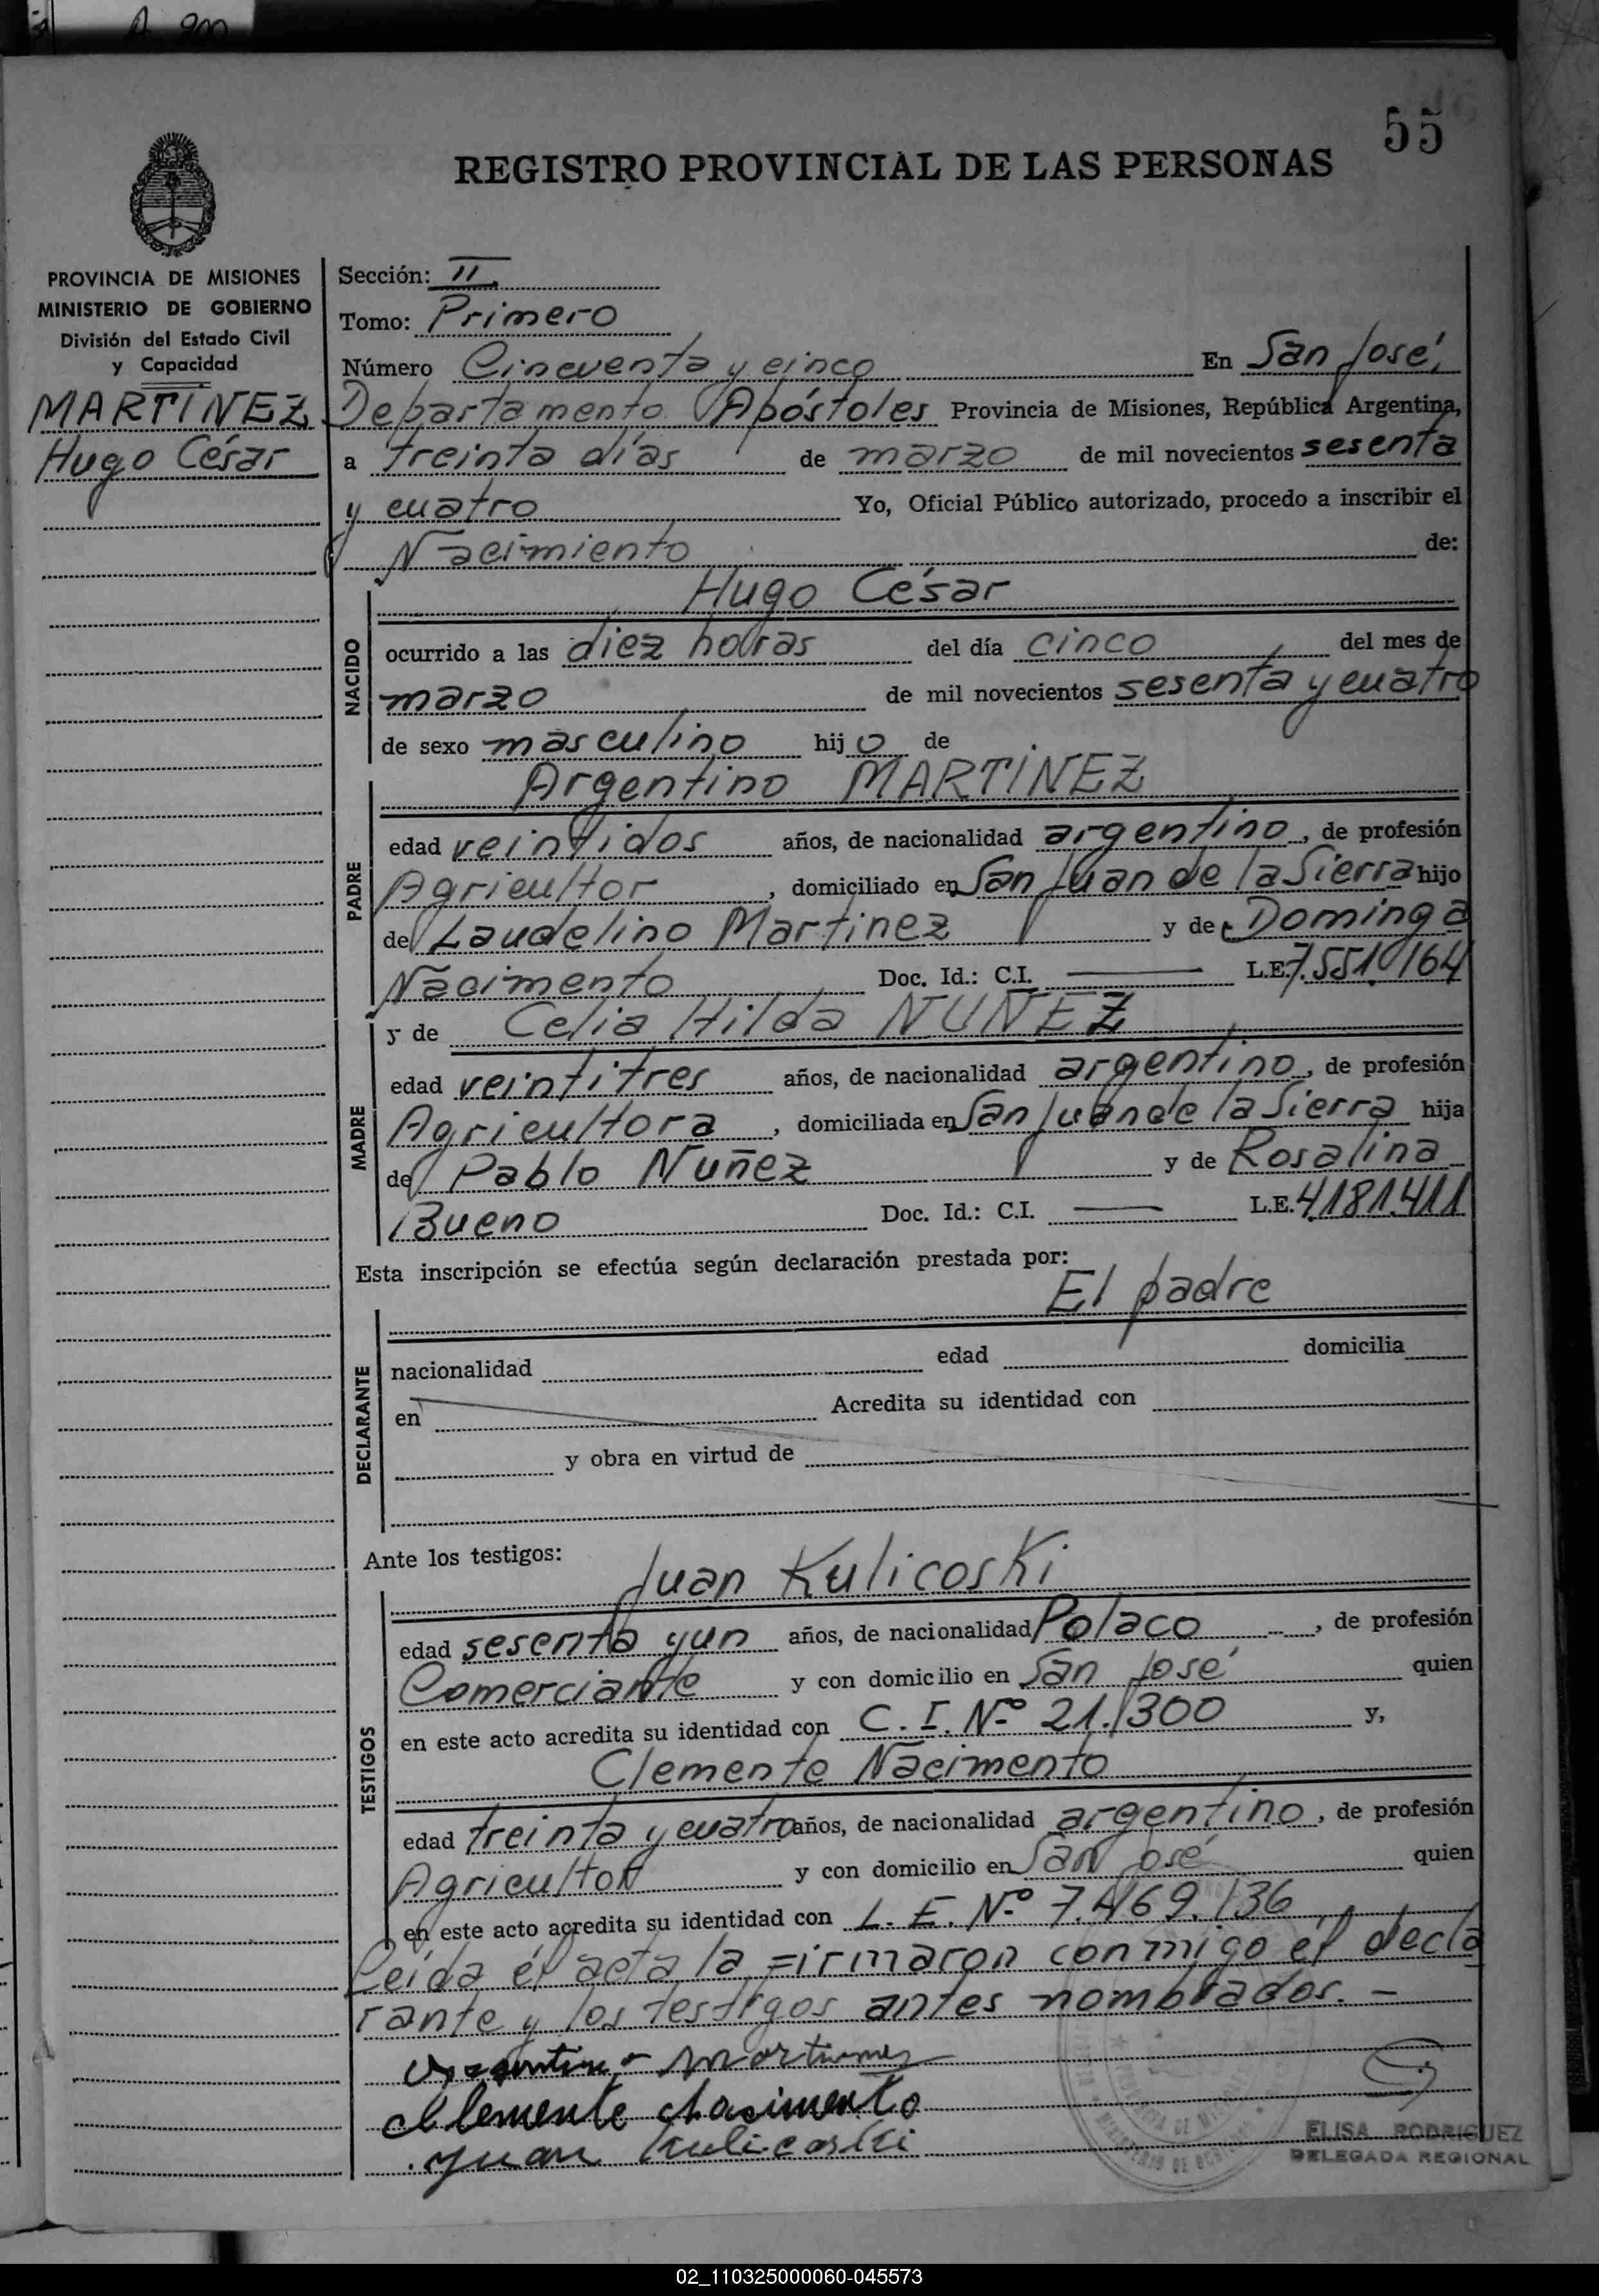 A 900
55
REGISTRO PROVINCIAL DE LAS PERSONAS
PROVINCIA DE MISIONES
MINISTERIO DE GOBIERNO
División del Estado Civil
y Capacidad
MARTINEZ
Hugo César
Sección: II
Tomo: Primero
Número Cincuenta y cinco En San José,
Departamento Apóstoles Provincia de Misiones, República Argentina,
a treinta días de marzo de mil novecientos sesenta
y cuatro Yo, Oficial Público autorizado, procedo a inscribir el
Nacimiento de:
NACIDO
Hugo César
ocurrido a las diez horas del día cinco del mes de
marzo de mil novecientos sesenta y cuatro
de sexo masculino hijo de
PADRE
Argentino MARTINEZ
edad veintidos años, de nacionalidad argentino, de profesión
Agricultor, domiciliado en San Juan de la Sierra hijo
de Laudelino Martinez y de Dominga
Nacimento Doc. Id.: C.I. — L.E. 7.551.164
MADRE
y de Celia Hilda NUÑEZ
edad veintitres años, de nacionalidad argentino, de profesión
Agricultora, domiciliada en San Juan de la Sierra hija
de Pablo Nuñez y de Rosalina
Bueno Doc. Id.: C.I. — L.E. 4.181.411
Esta inscripción se efectúa según declaración prestada por:
El padre
DECLARANTE
nacionalidad edad domicilia
en Acredita su identidad con
y obra en virtud de
Ante los testigos:
TESTIGOS
Juan Kulicoski
edad sesenta y un años, de nacionalidad Polaco, de profesión
Comerciante y con domicilio en San José quien
en este acto acredita su identidad con C.I. Nº 21.300 y,
Clemente Nacimento
edad treinta y cuatro años, de nacionalidad argentino, de profesión
Agricultor y con domicilio en San José quien
en este acto acredita su identidad con L.E. Nº 7.469.136
Leída él acta la firmaron conmigo él decla
rante y los testigos antes nombrados. —
Argentino Martinez
Clemente Nasimento
Juan Kulicoski
ELISA RODRIGUEZ
DELEGADA REGIONAL
02_110325000060-045573